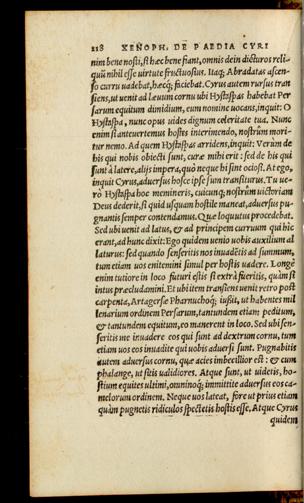 218 XENOPH. DE PAEDIA CYRI
nim bene nosti, si hæc bene fiant, omnis dein dicturos reli-
quũ nihil esse uirtute fructuosius. Itaq; Abradatas ascen-
so curru uadebat, hæcq́; faciebat. Cyrus autem rursus tran
siens, ut uenit ad læuum cornu ubi Hystaspas habebat Per
sarum equitum dimidium, eum nomine uocans, inquit: O
Hystaspa, nunc opus uides dignum celeritate tua. Nunc
enim si anteuertemus hostes interimendo, nostrûm mori-
tur nemo. Ad quem Hystaspas arridens, inquit: Verùm de
his qui nobis obiecti sunt, curæ mihi erit: sed de his qui
sunt à latere, alijs impera, quò neque hi sint ociosi. At ego,
inquit Cyrus, aduersus hosce ipse sum transiturus. Tu ue-
rò Hystaspa hoc memineris, cuicunq; nostrûm uictoriam
Deus dederit, si quid usquam hostile maneat, aduersus pu-
gnantis semper contendamus. Quæ loquutus procedebat.
Sed ubi uenit ad latus, & ad principem curruum qui hîc
erant, ad hunc dixit: Ego quidem uenio uobis auxilium al
laturus: sed quando senseritis nos inuadētis ad summum,
tum etiam uos enitemini simul per hostis uadere. Longè
enim tutiore in loco futuri estis si extrà fueritis, quàm si
intus præcludamini. Et ubi item transiens uenit retro post
carpenta, Artagersæ Pharnuchoq́; iußit, ut habentes mil
lenarium ordinem Persarum, tantundem etiam peditum,
& tantundem equitum, eo manerent in loco. Sed ubi sen-
seritis me inuadere eos qui sunt ad dextrum cornu, tum
etiam uos eos inuadite qui uobis aduersi sunt. Pugnabitis
autem aduersus cornu, quæ acies imbecillior est: & cum
phalange, ut sitis ualidiores. Atque sunt, ut uidetis, ho-
stium equites ultimi, omninoq́; immittite aduersus eos ca-
melorum ordinem. Neque uos lateat, fore ut prius etiam
quàm pugnetis ridiculos spectetis hostis esse. Atque Cyrus
quidem